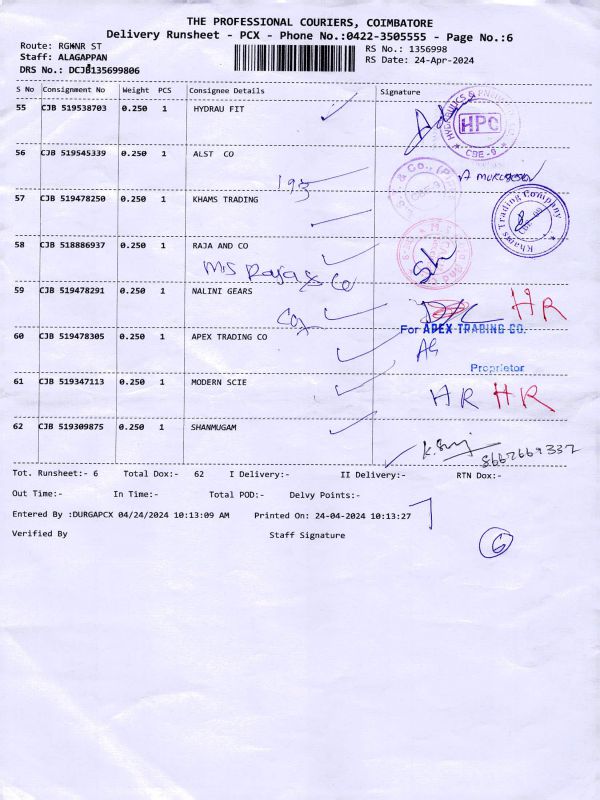 THE PROFESSIONAL COURIERS, COIMBATORE
Delivery Runsheet - PCX - Phone No.:0422-3505555 - Page No.:6
Route: RGHNR ST
RS No.: 1356998
Staff: ALAGAPPAN
RS Date: 24-Apr-2024
DRS No.: DCJB135699806
S No Consignment No Weight PCS Consignee Details Signature
55 CJB 519538703 0.250 1 HYDRAU FIT
HPC
CBE-6
56 CJB 519545339 0.250 1 ALST CO
193
57 CJB 519478250 0.250 1 KHAMS TRADING
Khams Trading Company
58 CJB 518886937 0.250 1 RAJA AND CO
M/s Raja & Co
59 CJB 519478291 0.250 1 NALINI GEARS
HR
60 CJB 519478305 0.250 1 APEX TRADING CO
For APEX TRADING CO.
Proprietor
61 CJB 519347113 0.250 1 MODERN SCIE
HR HR
62 CJB 519309875 0.250 1 SHANMUGAM
Tot. Runsheet:- 6 Total Dox:- 62 I Delivery:- II Delivery:- RTN Dox:-
Out Time:- In Time:- Total POD:- Delvy Points:-
Entered By :DURGAPCX 04/24/2024 10:13:09 AM Printed On: 24-04-2024 10:13:27
Verified By Staff Signature
6